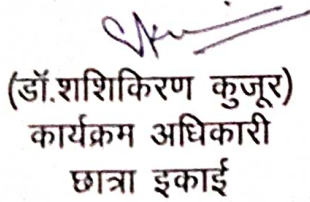 (डॉ.शशिकिरण कुजूर)
कार्यक्रम अधिकारी
छात्रा इकाई